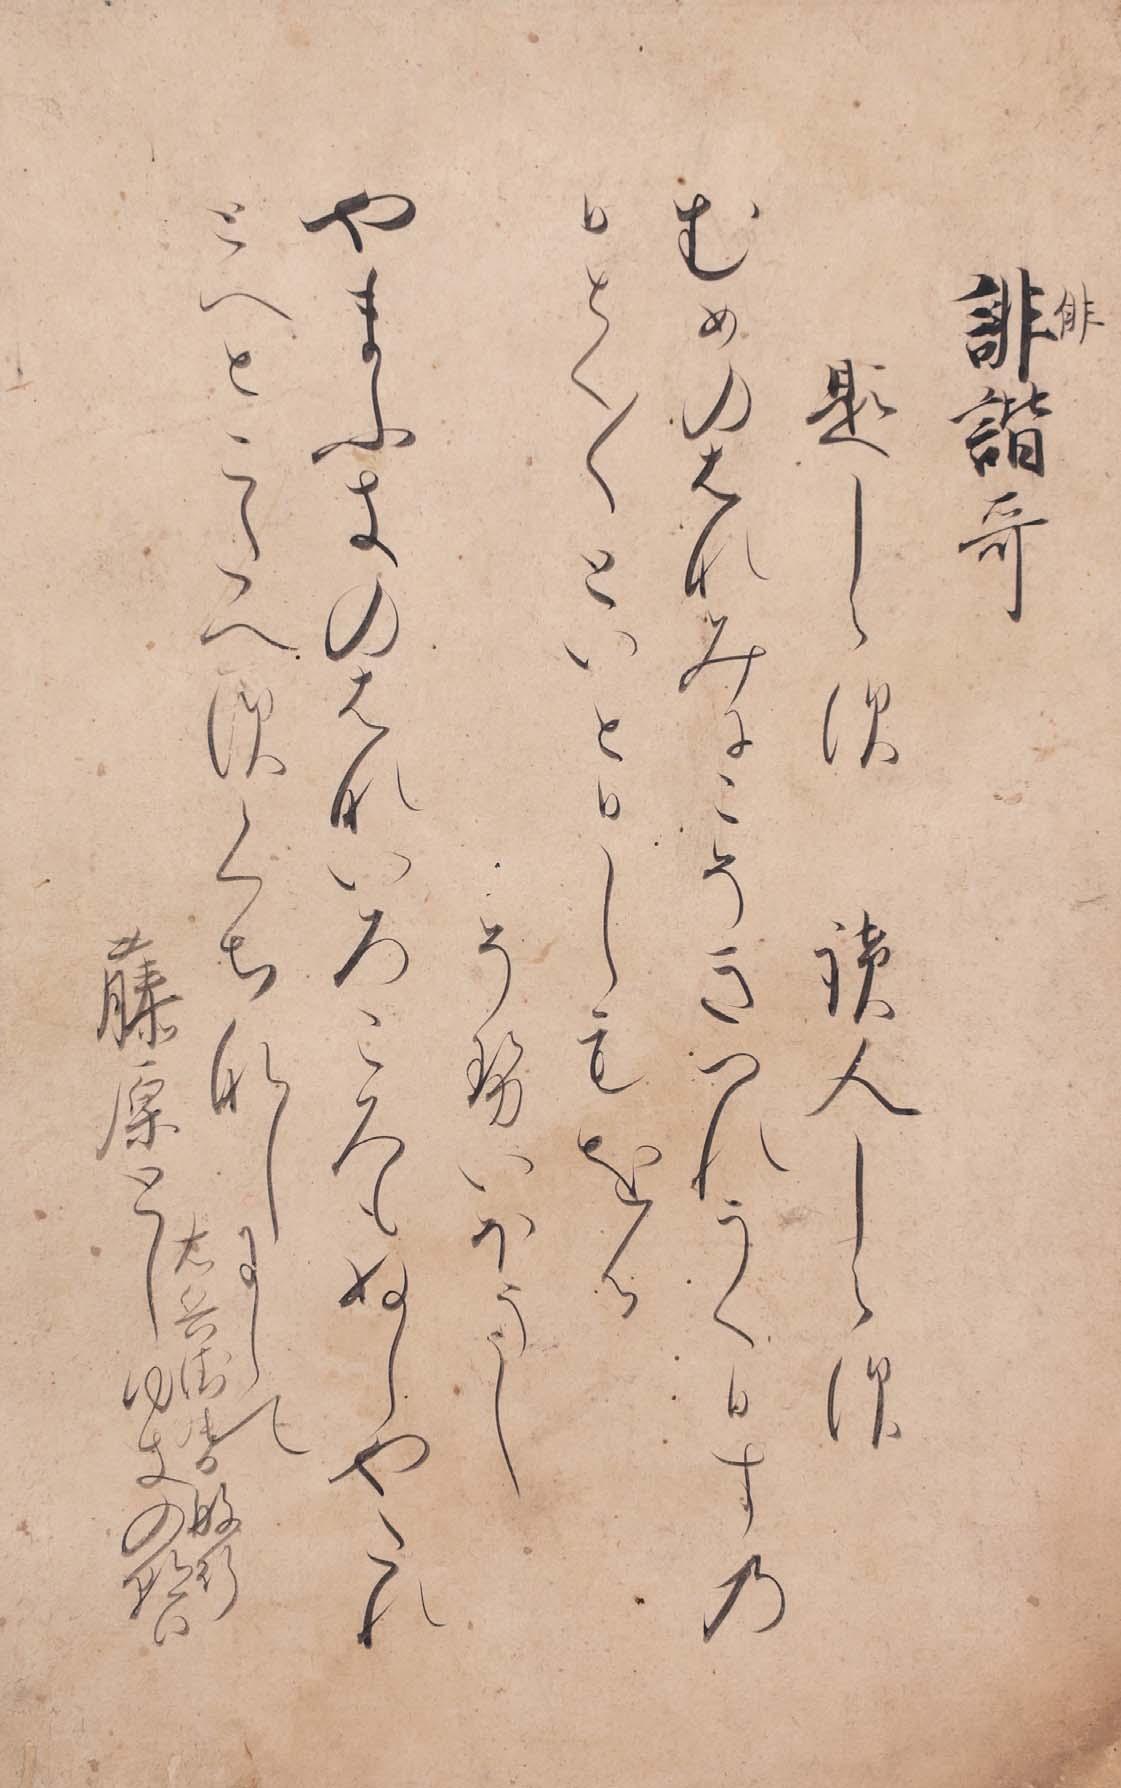 誹諧哥
俳
題しらす 讀人しらす
むめのはなみにこそきつれうくひすの
ひとく〱といとひしもをる
そせいほうし
やまふきのはないろころもぬしやたれ
とへとこたへすくちなしにして
右兵衛督敏行
藤原としゆきの朝臣